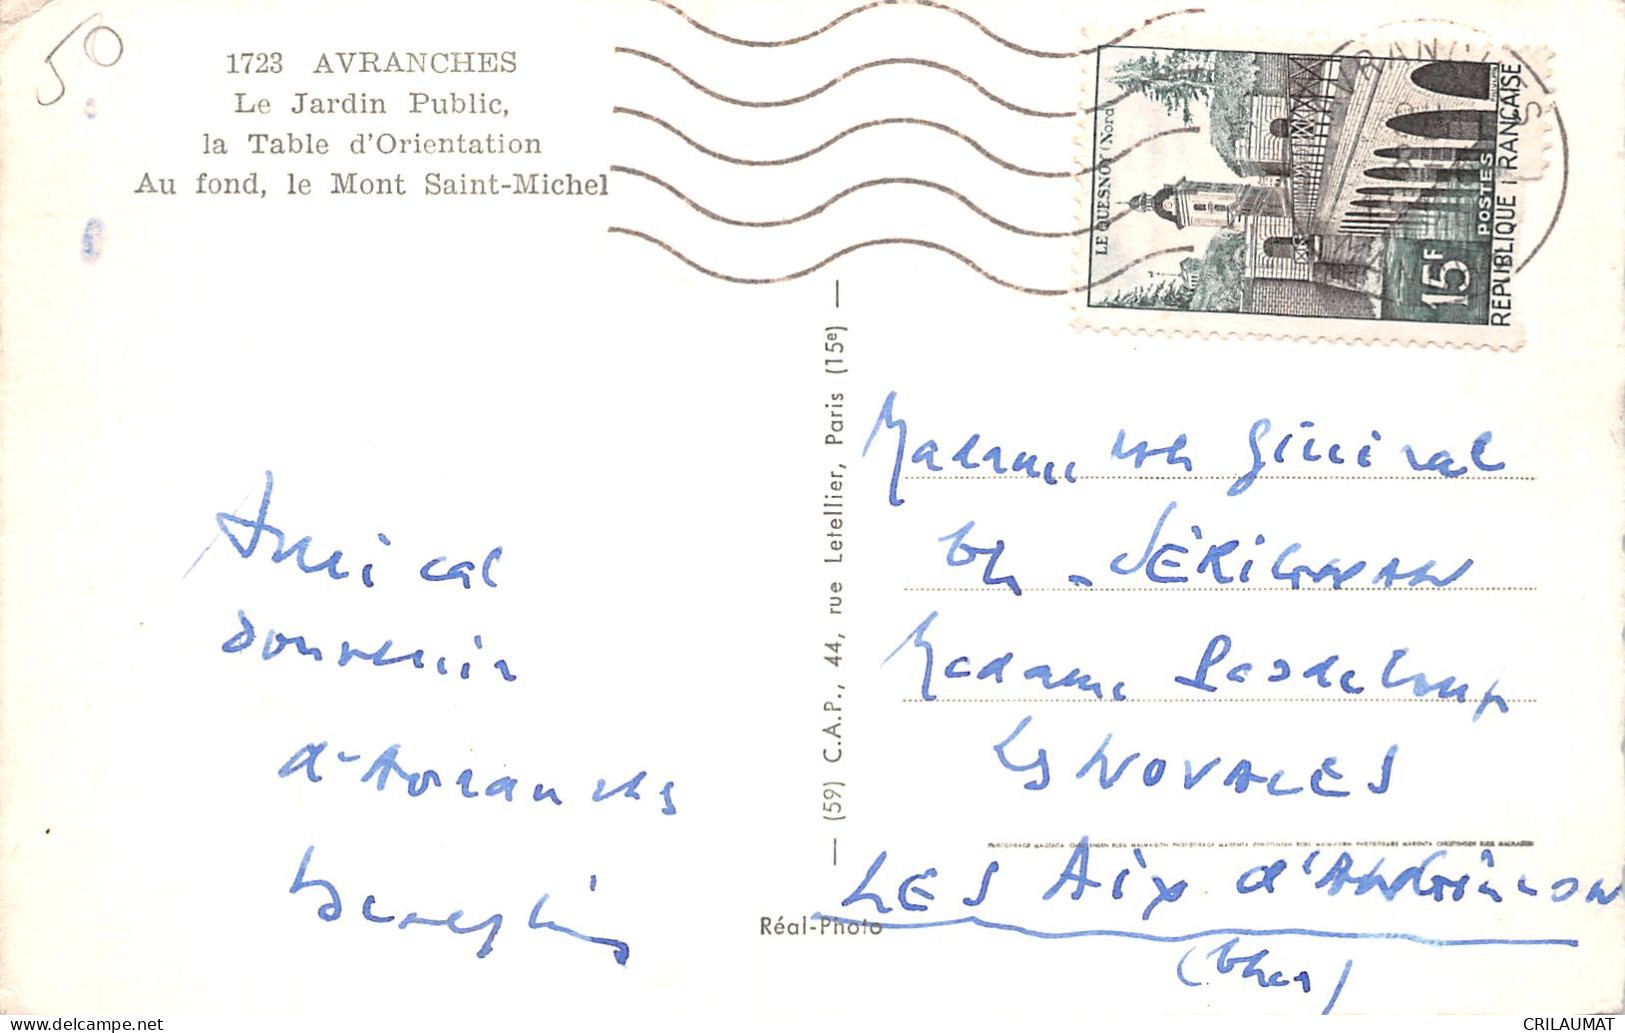 50
1723 AVRANCHES
Le Jardin Public,
la Table d'Orientation
Au fond, le Mont Saint-Michel
LE QUESNOY (Nord)
15F
POSTES
REPUBLIQUE FRANÇAISE
Amical
souvenir
d'Avranches
(59) C.A.P., 44, rue Letellier, Paris (15e)
Réal-Photo
Madame
Général
Madame Pasdeloup
Les NOUALES
LES Aix d'ANGILLON
(Cher)
CRILAUMAT